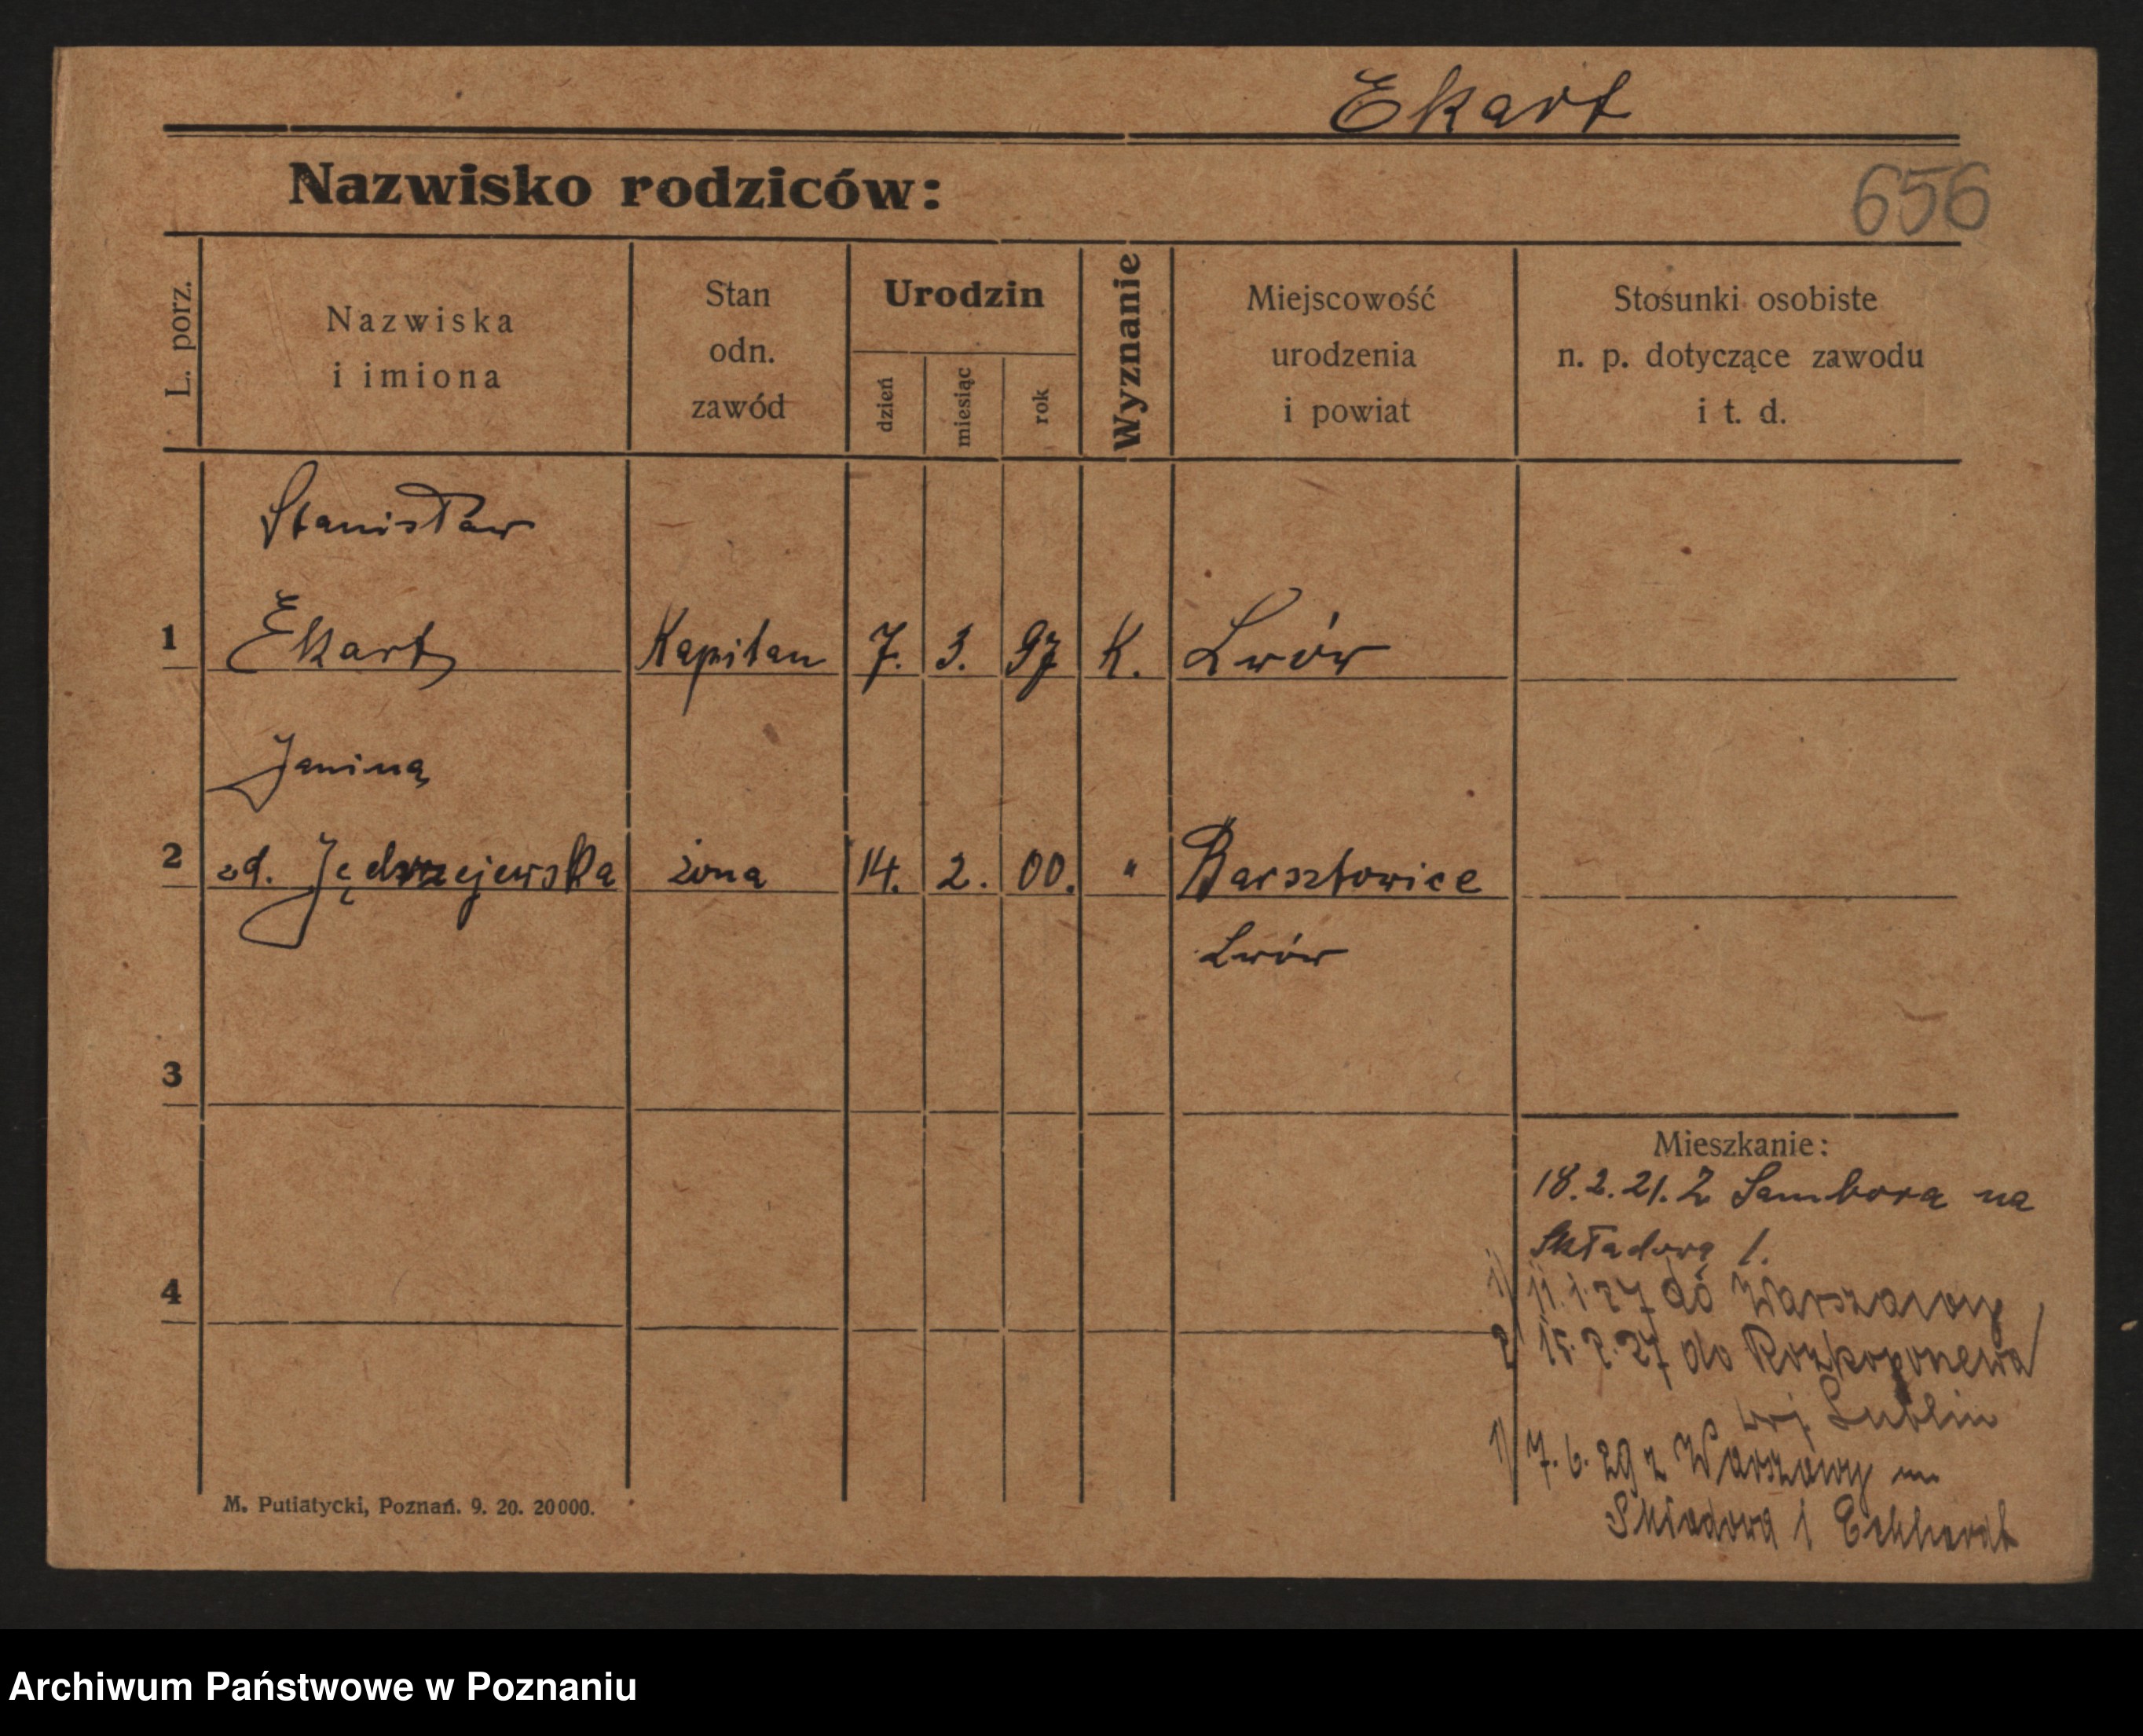 Ekart
Nazwisko rodziców:
656
L. porz.
Nazwiska
i imiona
Stan
odn.
zawód
Urodzin
dzień
miesiąc
rok
Wyznanie
Miejscowość
urodzenia
i powiat
Stosunki osobiste
n. p. dotyczące zawodu
i t. d.
Stanisław
1 Ekart Kapitan 7. 3. 97 K. Lwów
Janina
2 zd. Jędrzejewska żona 14. 2. 00. " Barsztowice
Lwów
3
4
Mieszkanie:
18.2.21. Z Sambora na
Składową 1.
1/ 11.1.27 do Warszawy
2/ 15.2.27 do
wj. Lublin
1/ 7.6.29 z Warszawy na
Składową 1 Eckhardt
M. Putiatycki, Poznań. 9. 20. 20000.
Archiwum Państwowe w Poznaniu